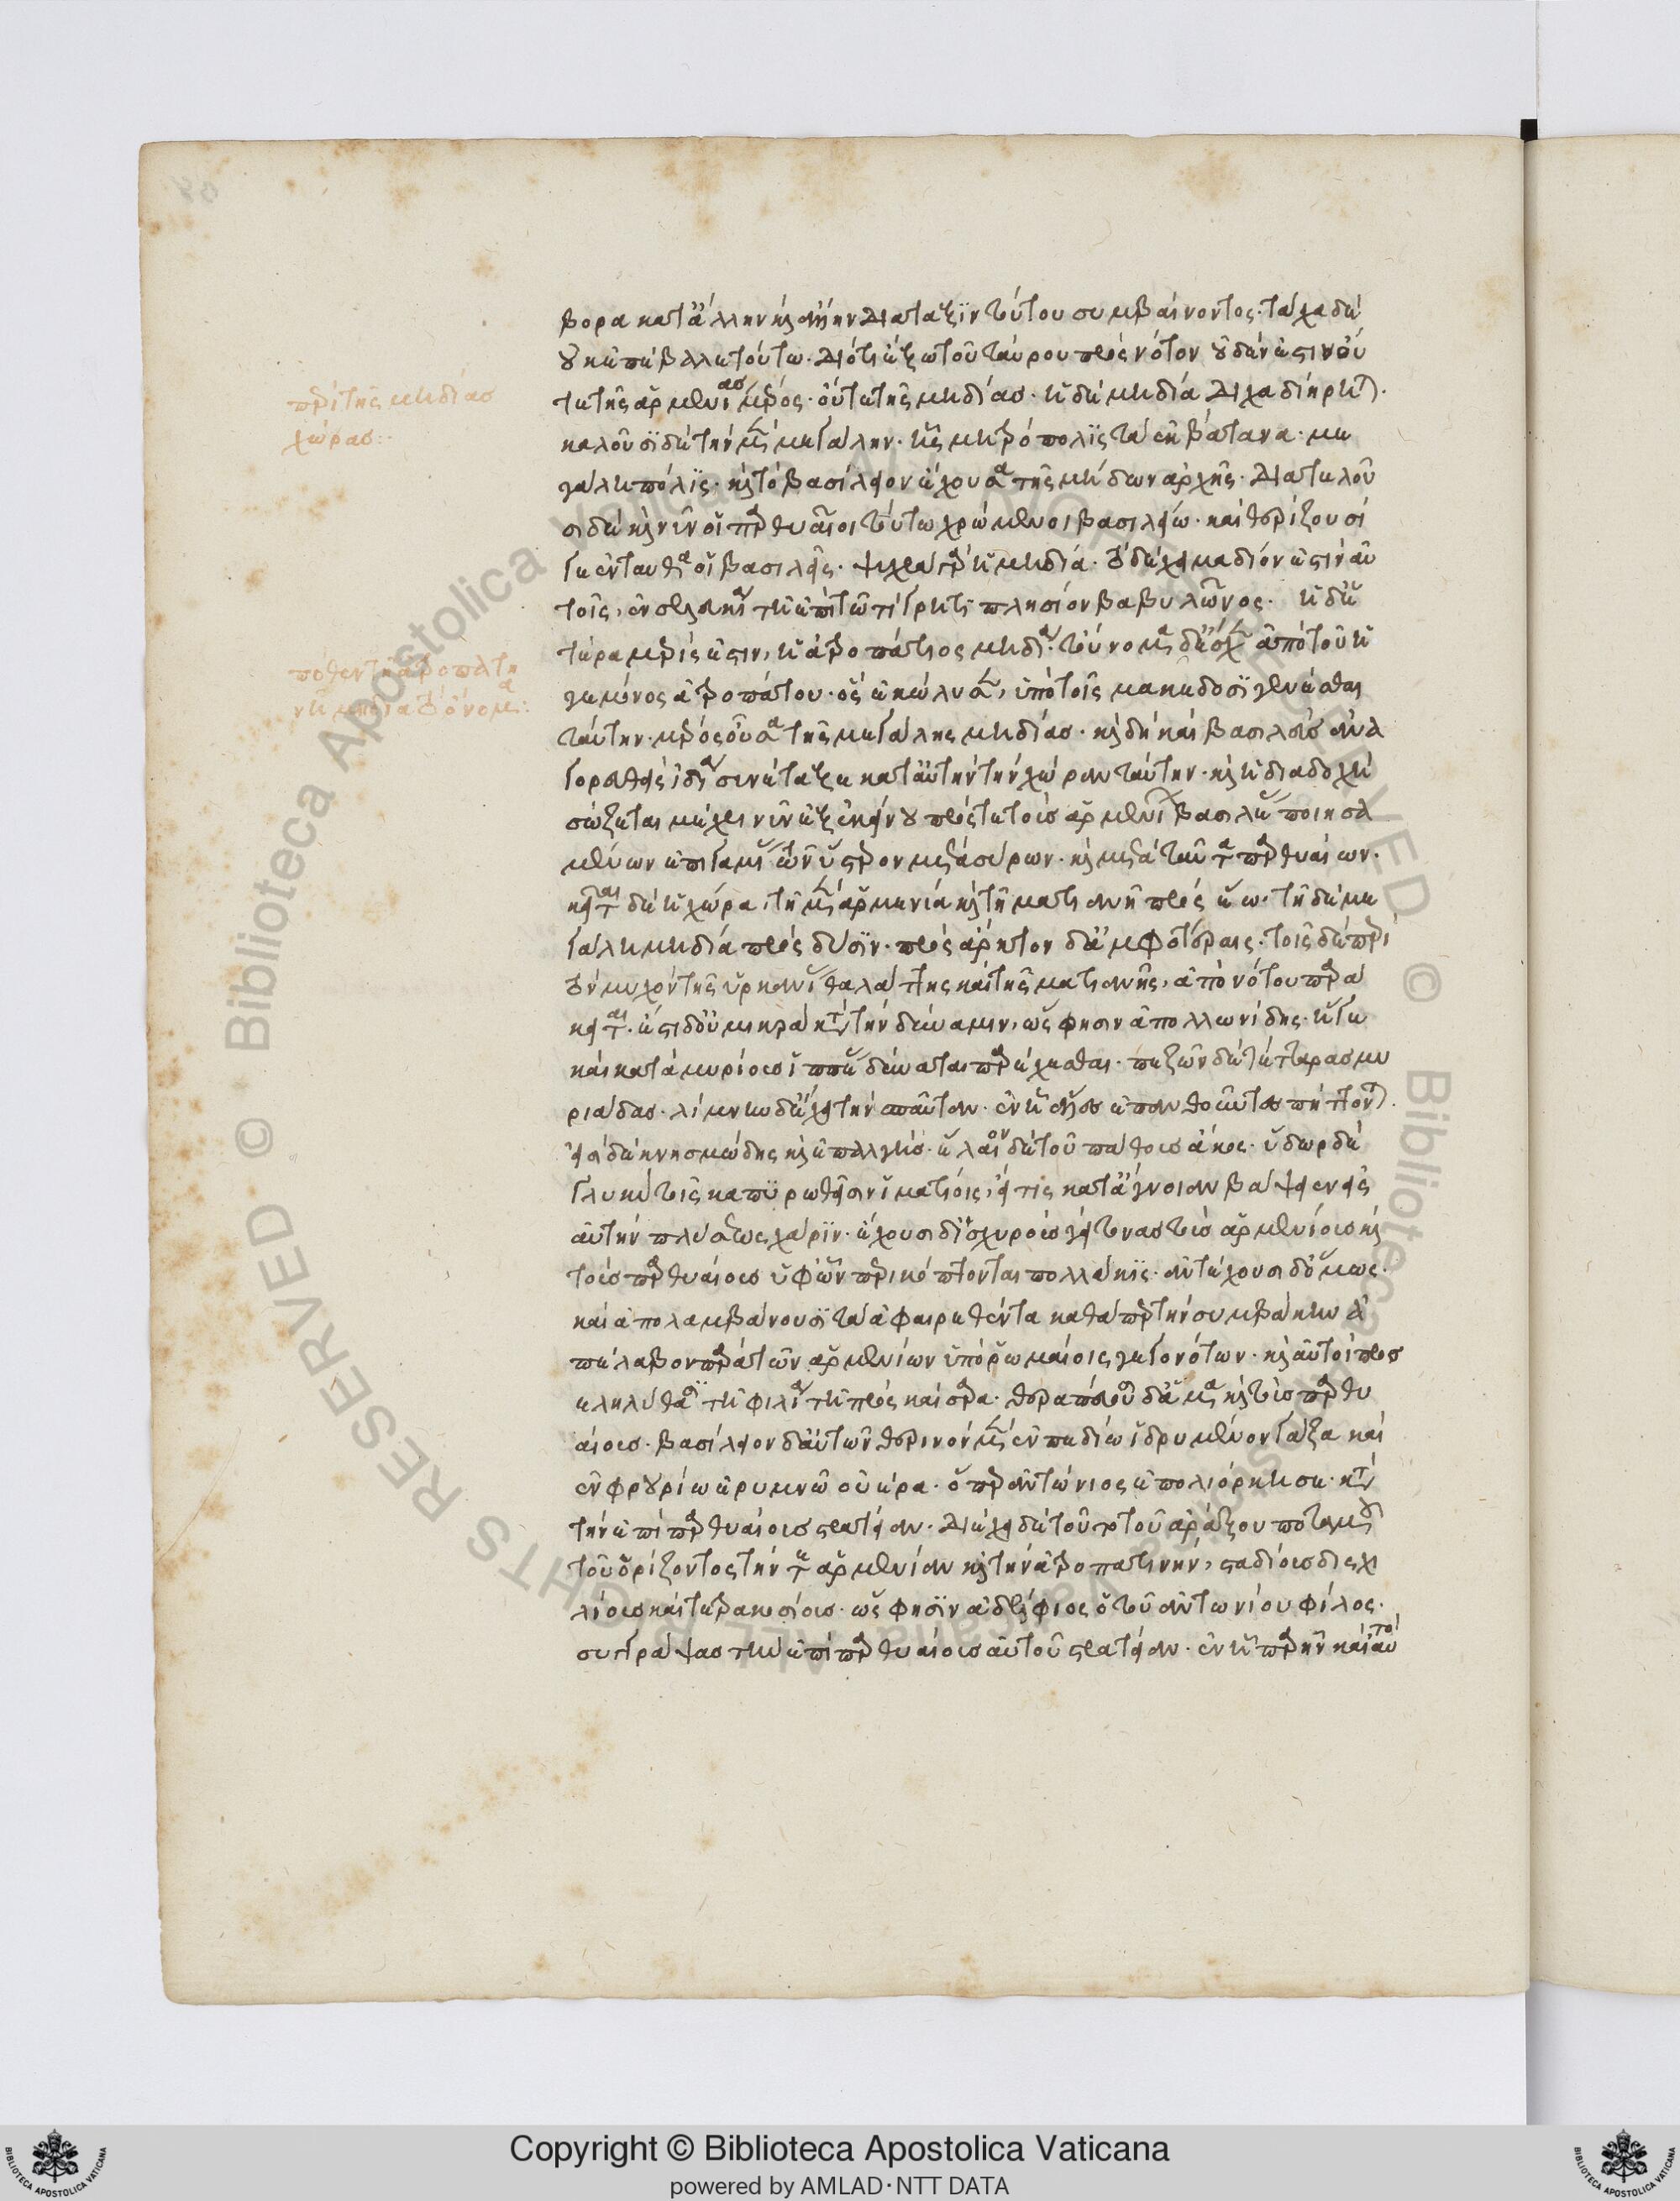 βορα κατ' ἄλλην καὶ ἄλλην διάταξιν τούτου συμβαίνοντος· τάχα δὲ
οὐκ ἐπέβαλλε τούτω· διότι ἔξω τοῦ ταύρου πρὸς νότον οὐδέν ἐστιν οὔ
τε τῆς ἀρμενίας μέρος· οὔτε τῆς μηδίας· ἡ δὲ μηδία δίχα διήρηται·
καλοῦσι δὲ τὴν μὲν μεγάλην· ἧς μητρόπολις τὰ ἐκβάτανα· με
γάλη πόλις· καὶ τὸ βασίλειον ἔχουσα τῆς μήδων ἀρχῆς· διατελοῦ
σι δὲ καὶ νῦν οἱ παρθυαῖοι τούτω χρώμενοι βασιλείω· καὶ θερίζουσί
γε ἐνταῦθα οἱ βασιλεῖς· ψυχρὰ γὰρ ἡ μηδία· τὸ δὲ χειμάδιόν ἐστιν αὐ
τοῖς, ἐν σελευκεία τῆ ἐπὶ τῶ τίγρητι πλησίον βαβυλῶνος· ἡ δ' ἑ
τέρα μερίς ἐστιν, ἡ ἀτροπάτιος μηδία· τοὔνομα δ' ἔσχεν ἀπὸ τοῦ ἡ
γεμόνος ἀτροπάτου· ὃς ἐκώλυσεν, ὑπὸ τοῖς μακεδόσι γενέσθαι
ταύτην· μέρος οὖσα τῆς μεγάλης μηδίας· καὶ δὴ καὶ βασιλεὺς ἀνα
γορευθεὶς ἰδία συνέταξε κατ' αὐτὴν τὴν χώραν ταύτην· καὶ ἡ διαδοχὴ
σώζεται μέχρι νῦν ἐξ ἐκείνου πρός τε τοὺς ἀρμενίων βασιλέας ποιησα
μένων ἐπιγαμίας τῶν ὕστερον μετὰ σύρων· καὶ μετὰ ταῦτα παρθυαίων·
κεῖται δὲ ἡ χώρα, τῆ μὲν ἀρμενία καὶ τῆ ματιανῆ πρὸς ἕω· τῆ δὲ με
γάλη μηδία πρὸς δύσιν· πρὸς ἄρκτον δ' ἀμφοτέραις· τοῖς δὲ περὶ
τὸν μυχὸν τῆς ὑρκανίας θαλάττης καὶ τῆς ματιανῆς, ἀπὸ νότου παρά
κειται· ἔστι δ' οὐ μικρὰ κατὰ τὴν δύναμιν, ὥς φησιν ἀπολλωνίδης· ἥ γε
καὶ κατὰ μυρίους ἱππέας δύναται παρέχεσθαι· πεζῶν δὲ τέτταρας μυ
ριάδας· λίμνην δ' ἔχει τὴν σπαῦταν· ἐν ἧ ἅλες ἐπανθοῦντες πήττονται·
εἰσὶ δὲ κνησμώδης καὶ ἐπαλγεῖς· ἔλαιον δὲ τοῦ πάθους ἄκος· ὕδωρ δὲ
γλυκὺ τοῖς καπυρωθεῖσιν ἱματίοις, εἴ τις κατ' ἄγνοιαν βάψειεν εἰς
αὐτὴν πλύσεως χάριν· ἔχουσι δ' ἰσχυροὺς γείτονας τοὺς ἀρμενίους καὶ
τοὺς παρθυαίους ὑφ' ὧν περικόπτονται πολλάκις· ἀντέχουσι δ' ὅμως·
καὶ ἀπολαμβάνουσι τὰ ἀφαιρεθέντα καθάπερ τὴν συμβάκην ἀ
πέλαβον παρὰ τῶν ἀρμενίων ὑπὸ ῥωμαίοις γεγονότων· καὶ αὐτοὶ προσ
εληλύθασι τῆ φιλία τῆ πρὸς καίσαρα· θεραπεύουσι δ' ἅμα καὶ τοὺς παρθυ
αίους· βασίλειον δ' αὐτῶν θερινὸν μὲν ἐν πεδίω ἱδρυμένον γάζα καὶ
ἐν φρουρίω ἐρυμνῶ οὐέρα· ὅπερ ἀντώνιος ἐπολιόρκησε· κατὰ
τὴν ἐπὶ παρθυαίους στρατείαν· διέχει δὲ τοῦτο τοῦ ἀράξου ποταμοῦ
τοῦ ὁρίζοντος τήν τε ἀρμενίαν καὶ τὴν ἀτροπατηνήν, σταδίους δισχι
λίους καὶ τετρακοσίους· ὥς φησιν ἀδέλφιος ὁ τοῦ ἀντωνίου φίλος·
συγγράψας τὴν ἐπὶ παρθυαίους αὐτοῦ στρατείαν· ἐν ἧ παρῆν καὶ αὐτὸ
περὶ τῆς μηδίας
χώρας:
πόθεν τῆ ἀτροπατη
νῆ μηδία τὸ ὄνομα:
Copyright © Biblioteca Apostolica Vaticana
powered by AMLAD·NTT DATA